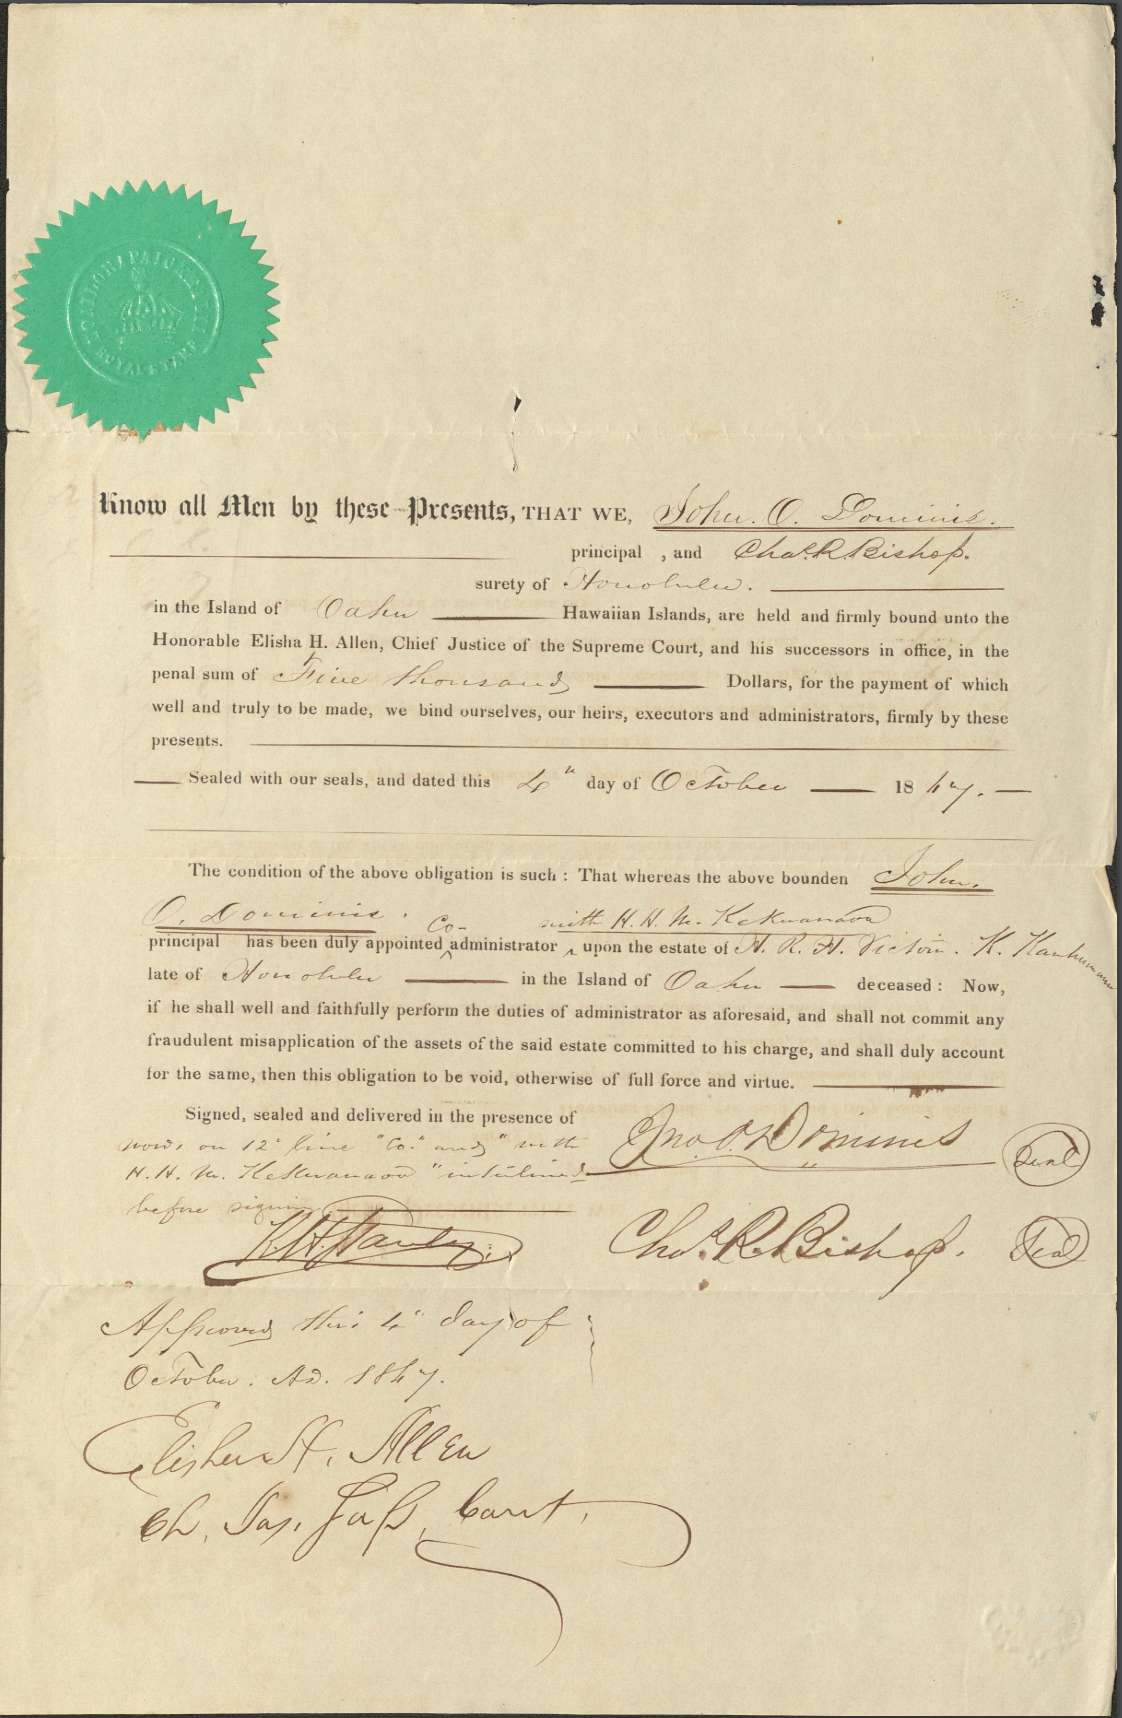 ROYAL STAMP
Know all Men by these Presents, THAT WE, John. O. Dominis.
principal , and Chas. R. Bishop.
surety of Honolulu.
in the Island of Oahu Hawaiian Islands, are held and firmly bound unto the
Honorable Elisha H. Allen, Chief Justice of the Supreme Court, and his successors in office, in the
penal sum of Five thousand Dollars, for the payment of which
well and truly to be made, we bind ourselves, our heirs, executors and administrators, firmly by these
presents.
Sealed with our seals, and dated this 4" day of October 1867.
The condition of the above obligation is such : That whereas the above bounden John.
O. Dominis.
Co- with H. H. M. Kekuanaoa
principal has been duly appointed administrator upon the estate of H. R. H. Victoria. K. Kaahumanu
late of Honolulu in the Island of Oahu deceased : Now,
if he shall well and faithfully perform the duties of administrator as aforesaid, and shall not commit any
fraudulent misapplication of the assets of the said estate committed to his charge, and shall duly account
for the same, then this obligation to be void, otherwise of full force and virtue.
Signed, sealed and delivered in the presence of
words on 12" line "Co." and "with
H. H. M. Kekuanaoa" interlined
before signing
Jno. O. Dominis Seal
Chas. R. Bishop. Seal
Approved this 4" day of
October. AD. 1867.
Elisha H. Allen
Ch. Jus. Sup. Court.